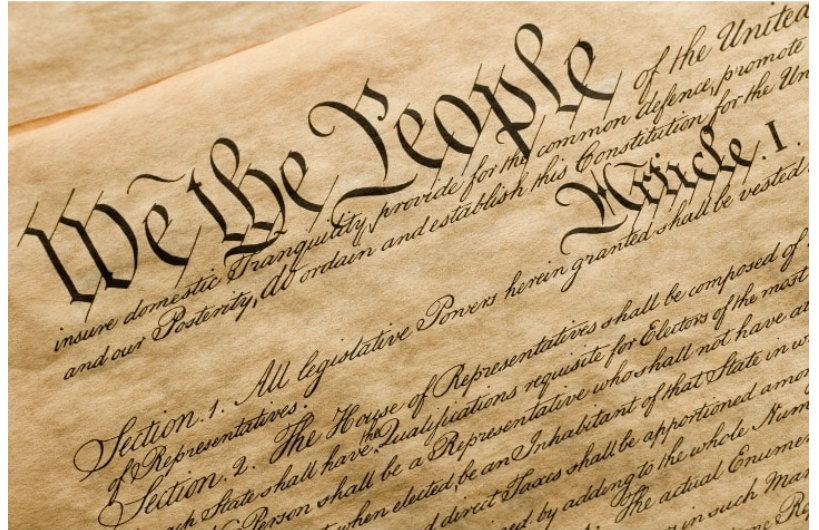 We the People of the United
insure domestic Tranquility, provide for the common defence, promote
and our Posterity, do ordain and establish this Constitution for the Un
Article. I.
Section. 1. All legislative Powers herein granted shall be vested
of Representatives.
Section. 2. The House of Representatives shall be composed of
ach State shall have the Qualifications requisite for Electors of the most
No Person shall be a Representative who shall not have at
when elected, be an Inhabitant of that State in w
d direct Taxes shall be apportioned amon
ed, by adding to the whole Num
The actual Enumer
in such Man